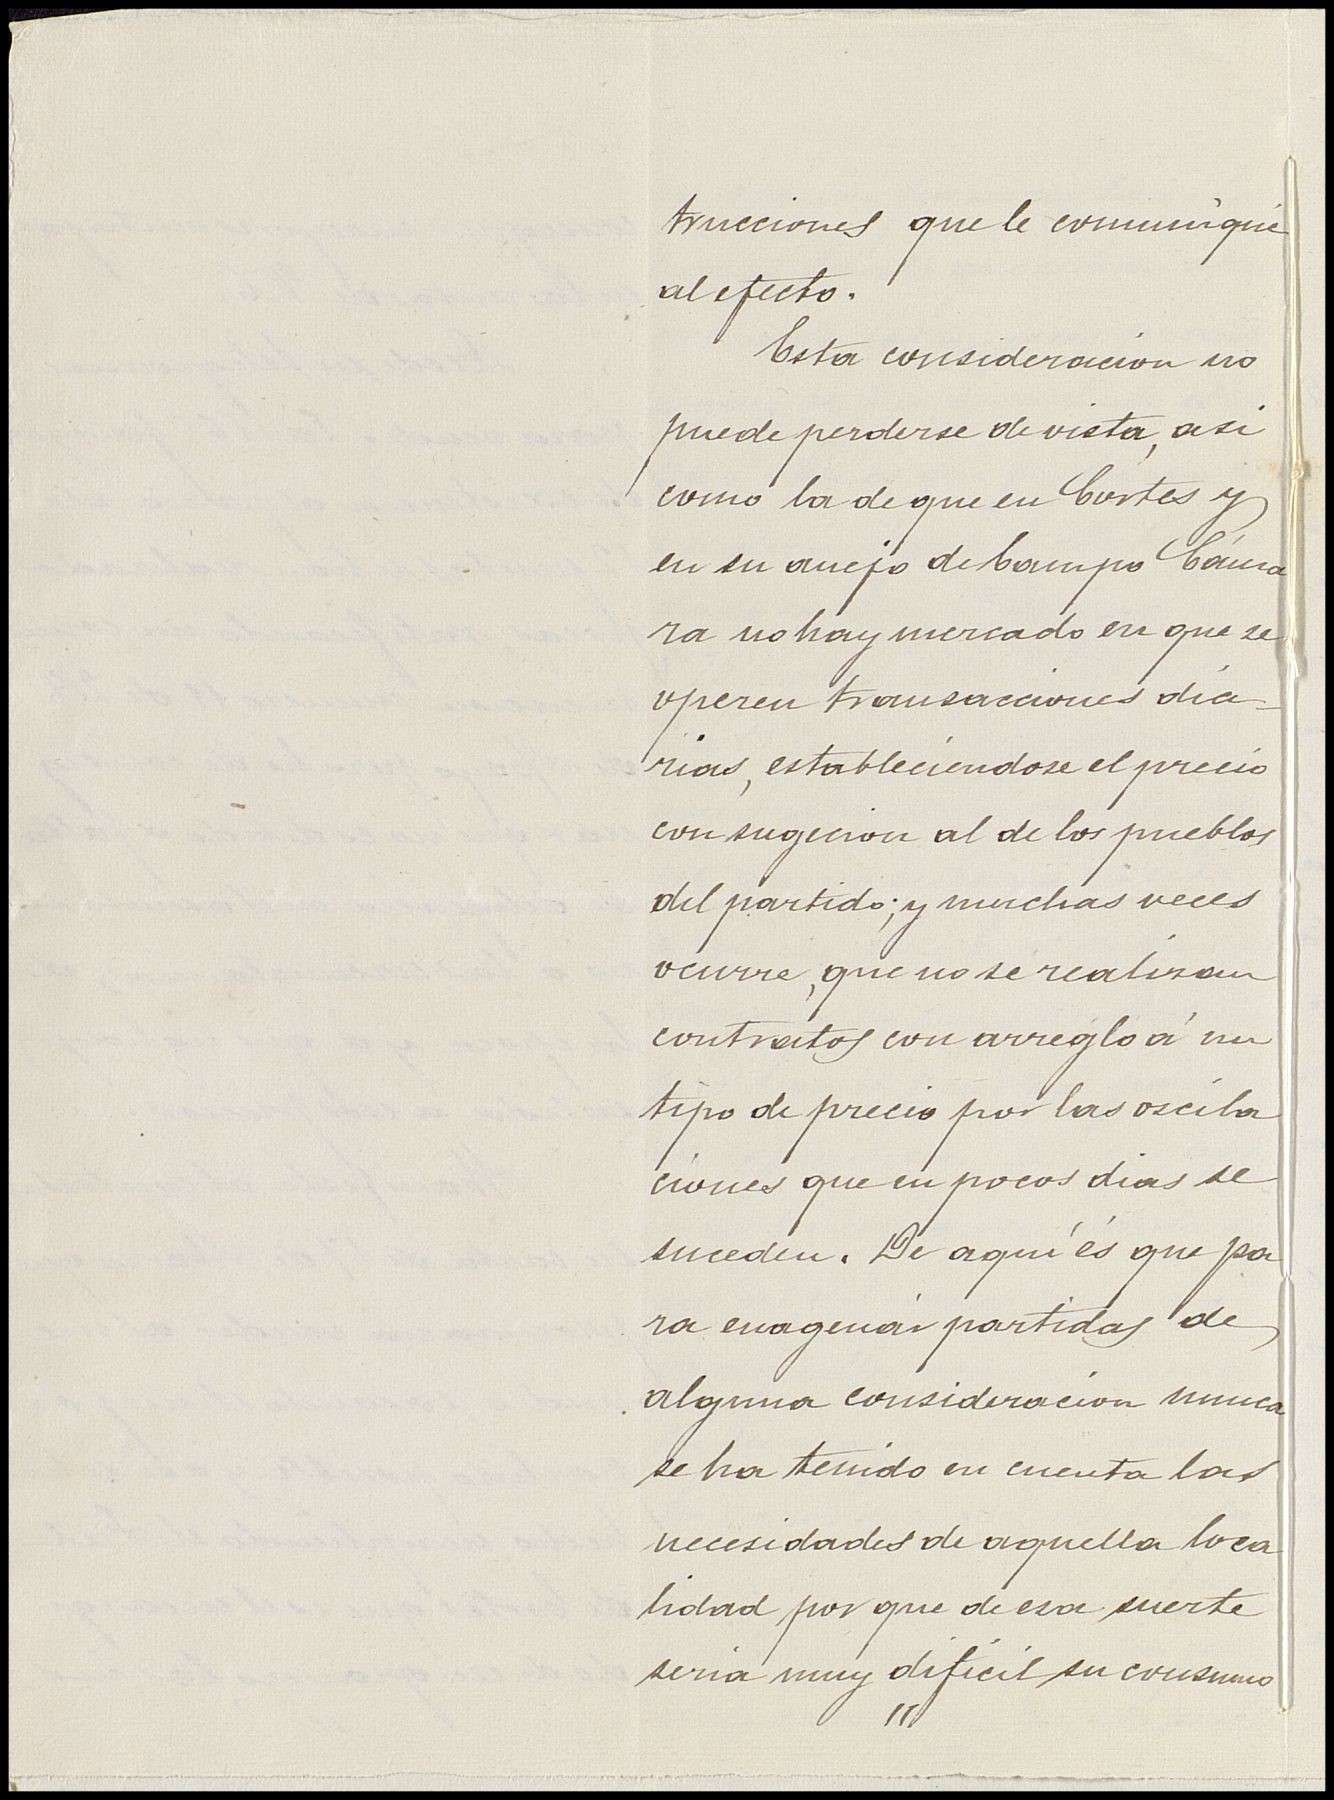 trucciones que le comuniqué
al efecto.
Esta consideracion no
puede perderse de vista, asi
como la de que en Cortes y
en su anejo de Campo Cáma
ra no hay mercado en que se
operen transacciones dia-
rias, estableciendose el precio
con sugecion al de los pueblos
del partido; y muchas veces
ocurre, que no se realizan
contratos con arreglo á un
tipo de precio por las oscila
ciones que en pocos dias se
suceden. De aquí és que pa
ra enagenár partidas de
alguna consideracion nunca
se ha tenido en cuenta las
necesidades de aquella loca
lidad por que de esa suerte
seria muy dificil su consumo
"